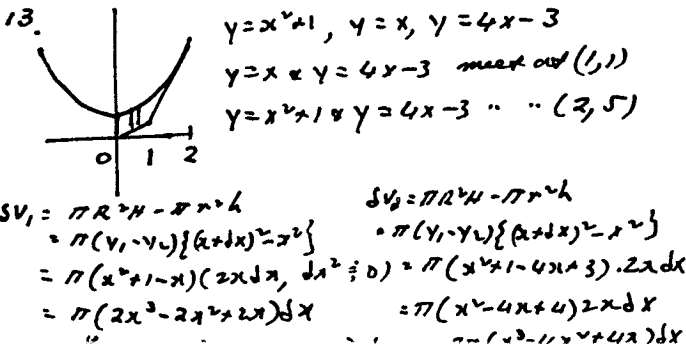 13.
y = x²+1, y = x, y = 4x-3
y = x & y = 4x-3 meet at (1,1)
y = x²+1 & y = 4x-3 " " (2,5)
0 1 2
δV₁ = πR²H - πr²h
= π(y₁-y₂){(x+dx)²-x²}
= π(x²+1-x)(2xdx, dx² ≑ 0)
= π(2x³-2x²+2x)dx
δV₂ = πR²H - πr²h
= π(y₁-y₂){(x+dx)²-x²}
= π(x²+1-4x+3).2xdx
= π(x²-4x+4)2xdx
(x³-4x²+4x)dx